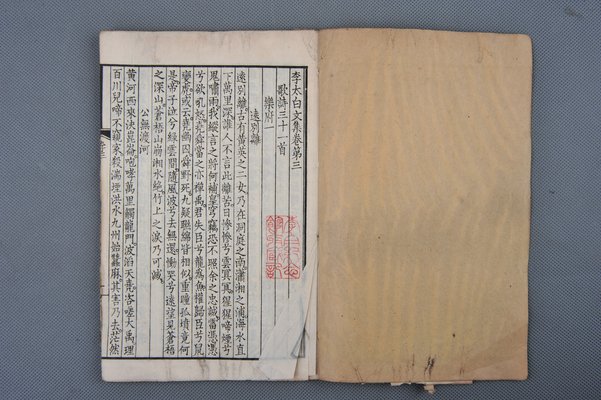 李太白文集卷第三
歌詩三十一首
樂府一
遠別離
遠別離古有皇英之二女乃在洞庭之南瀟湘之浦海水直
下萬里深誰人不言此離苦日慘慘兮雲冥冥猩猩啼煙兮
鬼嘯雨我縱言之將何補皇穹竊恐不照余之忠誠雷憑憑
兮欲吼怒堯舜當之亦禪禹君失臣兮龍為魚權歸臣兮鼠
變虎或云堯幽囚舜野死九疑聯綿皆相似重瞳孤墳竟何
是帝子泣兮綠雲間隨風波兮去無還慟哭兮遠望見蒼梧
之深山蒼梧山崩湘水絕竹上之淚乃可滅
公無渡河
黃河西來決崑崙咆哮萬里觸龍門波滔天堯咨嗟大禹理
百川兒啼不窺家殺湍堙洪水九州始蠶麻其害乃去茫然